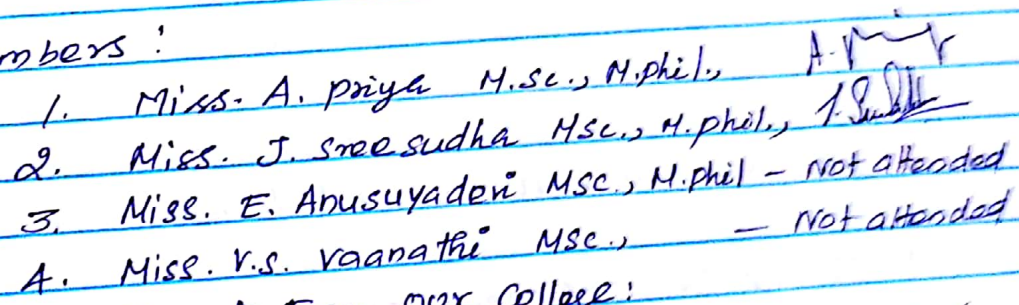 mbers :
1. Miss. A. Priya M.Sc., M.phil.,
2. Miss. J. Sree sudha MSc., M.phil.,
3. Miss. E. Anusuyadevi MSC., M.phil – Not attended
4. Miss. V.S. Vaanathi MSC., – Not attended
our College :